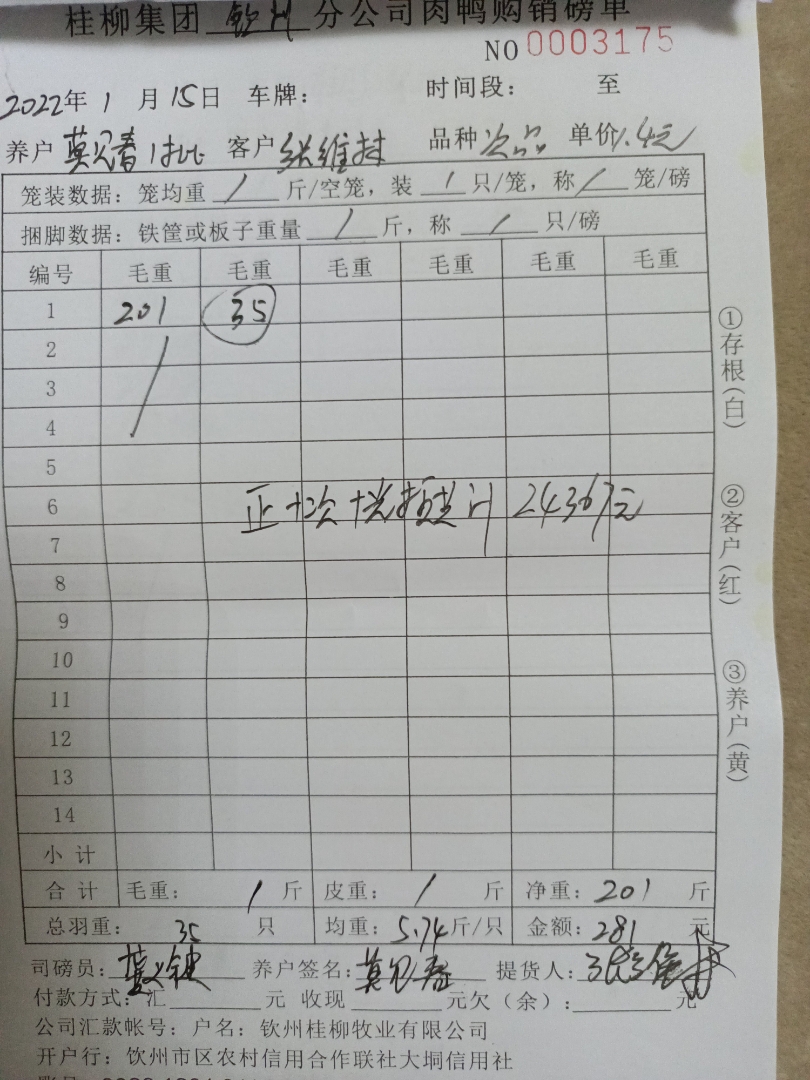 桂柳集团 钦州 分公司肉鸭购销磅单
NO 0003175
2022年 1 月 15日 车牌: 时间段: 至
养户 莫见春 1批 客户 张维林 品种 次品 单价1.4元
笼装数据: 笼均重 / 斤/空笼, 装 / 只/笼, 称 / 笼/磅
捆脚数据: 铁筐或板子重量 / 斤, 称 / 只/磅
编号 毛重 毛重 毛重 毛重 毛重 毛重
1 201 35
2
3
4
5
6
正+次 24367元
7
8
9
10
11
12
13
14
小计
合计 毛重: / 斤 皮重: / 斤 净重: 201 斤
总羽重: 35 只 均重: 5.74斤/只 金额: 281 元
司磅员: 养户签名: 莫见春 提货人:
付款方式: 汇 元 收现 元欠(余): 元
公司汇款帐号: 户名: 钦州桂柳牧业有限公司
开户行: 钦州市区农村信用合作联社大垌信用社
①存根(白)
②客户(红)
③养户(黄)